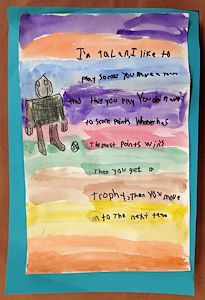 I'm talan, I like to
play soccer you have a
that you play You
to score points Whoever has
The most points wins
Then you get a
trophy, Then you move
on to the next